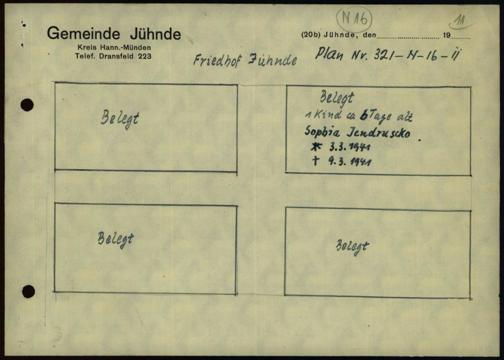 N 16
11
Gemeinde Jühnde
Kreis Hann.-Münden
Telef. Dransfeld 223
(20b) Jühnde, den 19
Friedhof Jühnde Plan Nr. 321-N-16-ii
Belegt
Belegt
1 Kind ca 6 Tage alt
Sophia Jendruscko
* 3.3.1941
† 9.3.1941
Belegt
Belegt